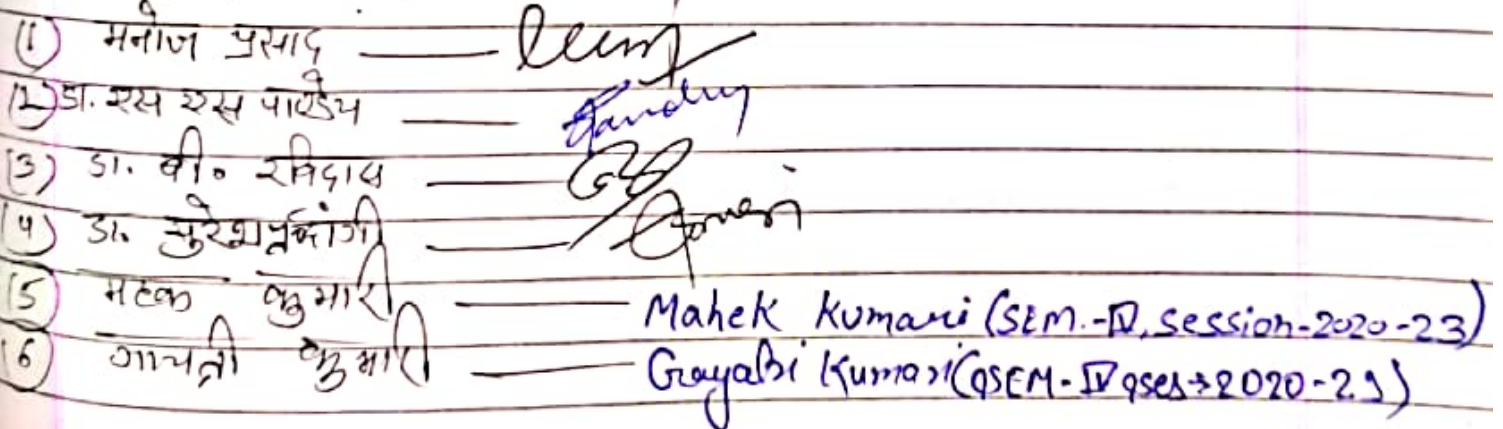 (1) मनोज प्रसाद —
(2) डा. एस एस पाण्डेय —
(3) डा. बी० रविदास —
(4) डा. सुरेश —
(5) महक कुमारी — Mahek Kumari (SEM.-IV, Session-2020-23)
(6) गायत्री कुमारी — Gayatri Kumari (SEM-IV 2020-23)